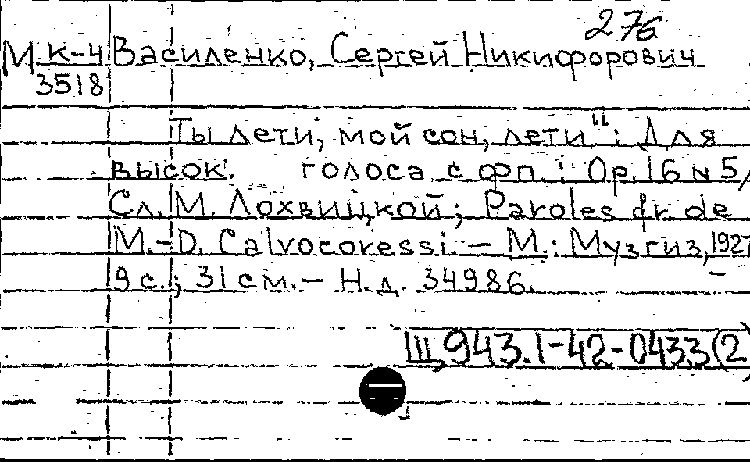 276
М К-4 Василенко, Сергей Никифорович
3518
Ты лети, мой сон, лети": Для
высок. голоса с фп.: Op. 16 N 5/
Сл. М. Лохвицкой; Paroles fr. de
M.-D. Calvocoressi. – М.: Музгиз, 1927
9 с.; 31 см. – Н.д. 34986.
Щ 943.1-42-0433(2)